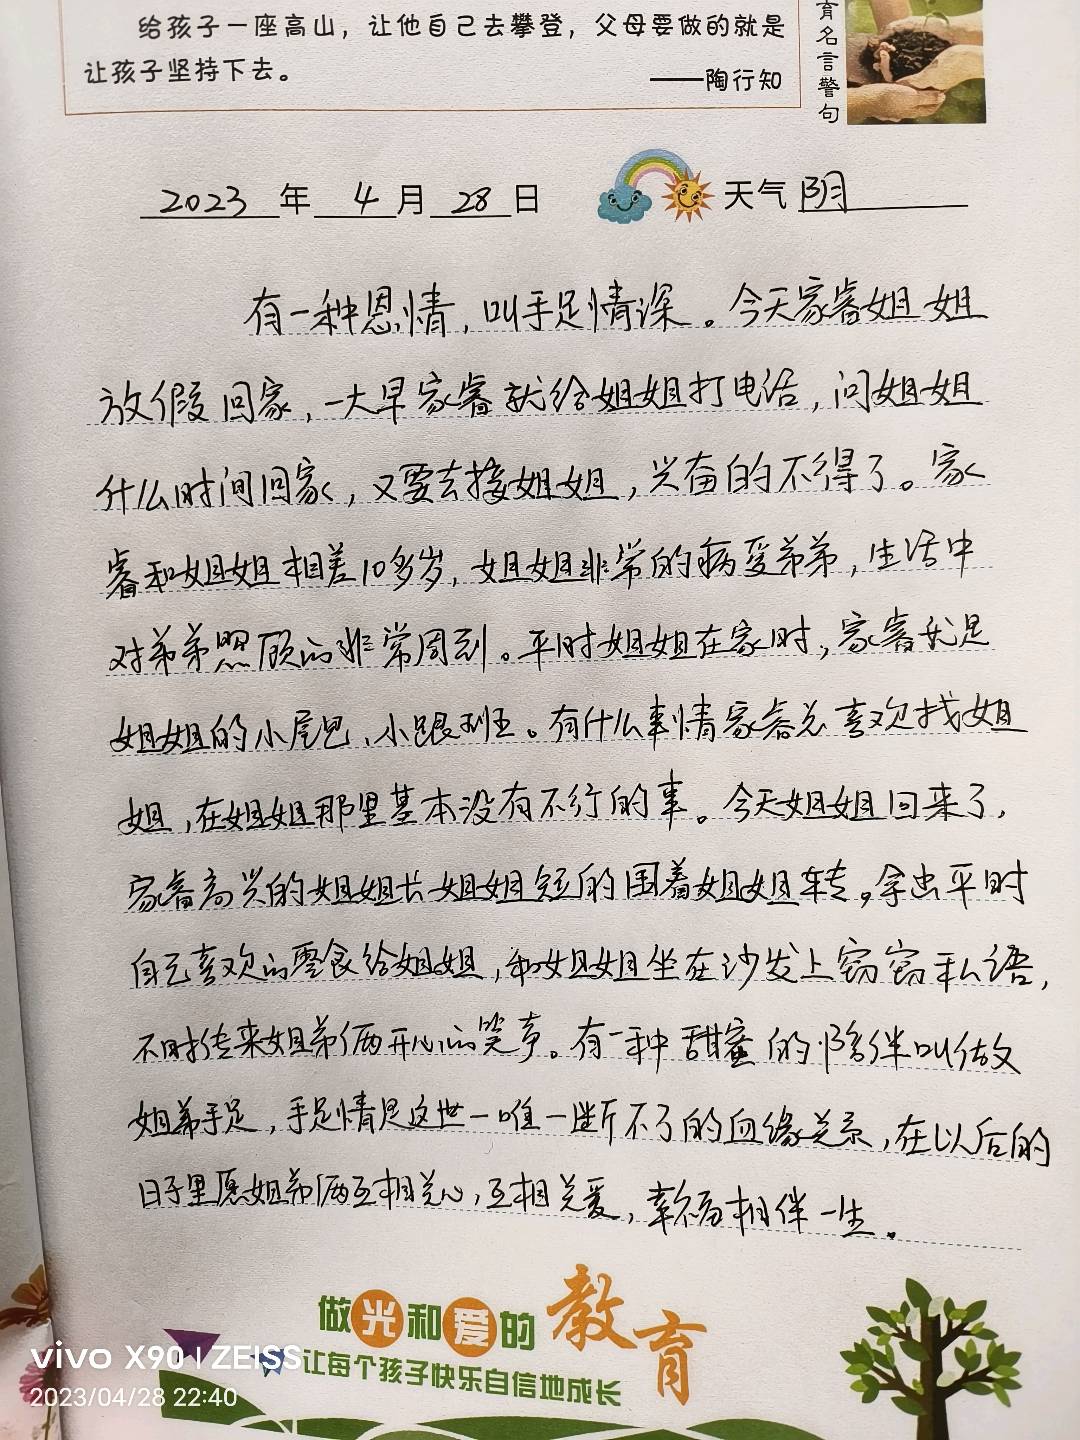 给孩子一座高山，让他自己去攀登，父母要做的就是
让孩子坚持下去。
——陶行知
育名言警句
2023年4月28日 天气 阴
有一种恩情，叫手足情深。今天家睿姐姐
放假回家，一大早家睿就给姐姐打电话，问姐姐
什么时间回家，又要去接姐姐，兴奋的不得了。家
睿和姐姐相差10多岁，姐姐非常的病爱弟弟，生活中
对弟弟照顾的非常周到。平时姐姐在家时，家睿就是
姐姐的小尾巴、小跟班。有什么事情家睿总喜欢找姐
姐，在姐姐那里基本没有不行的事。今天姐姐回来了，
家睿高兴的姐姐长姐姐短的围着姐姐转。拿出平时
自己喜欢的零食给姐姐，和姐姐坐在沙发上窃窃私语，
不时传来姐弟俩开心的笑声。有一种甜蜜的陪伴叫做
姐弟手足，手足情是这世一唯一断不了的血缘关系，在以后的
日子里愿姐弟俩互相关心，互相关爱，幸福相伴一生。
做光和爱的教育
让每个孩子快乐自信地成长
vivo X90 | ZEISS
2023/04/28 22:40